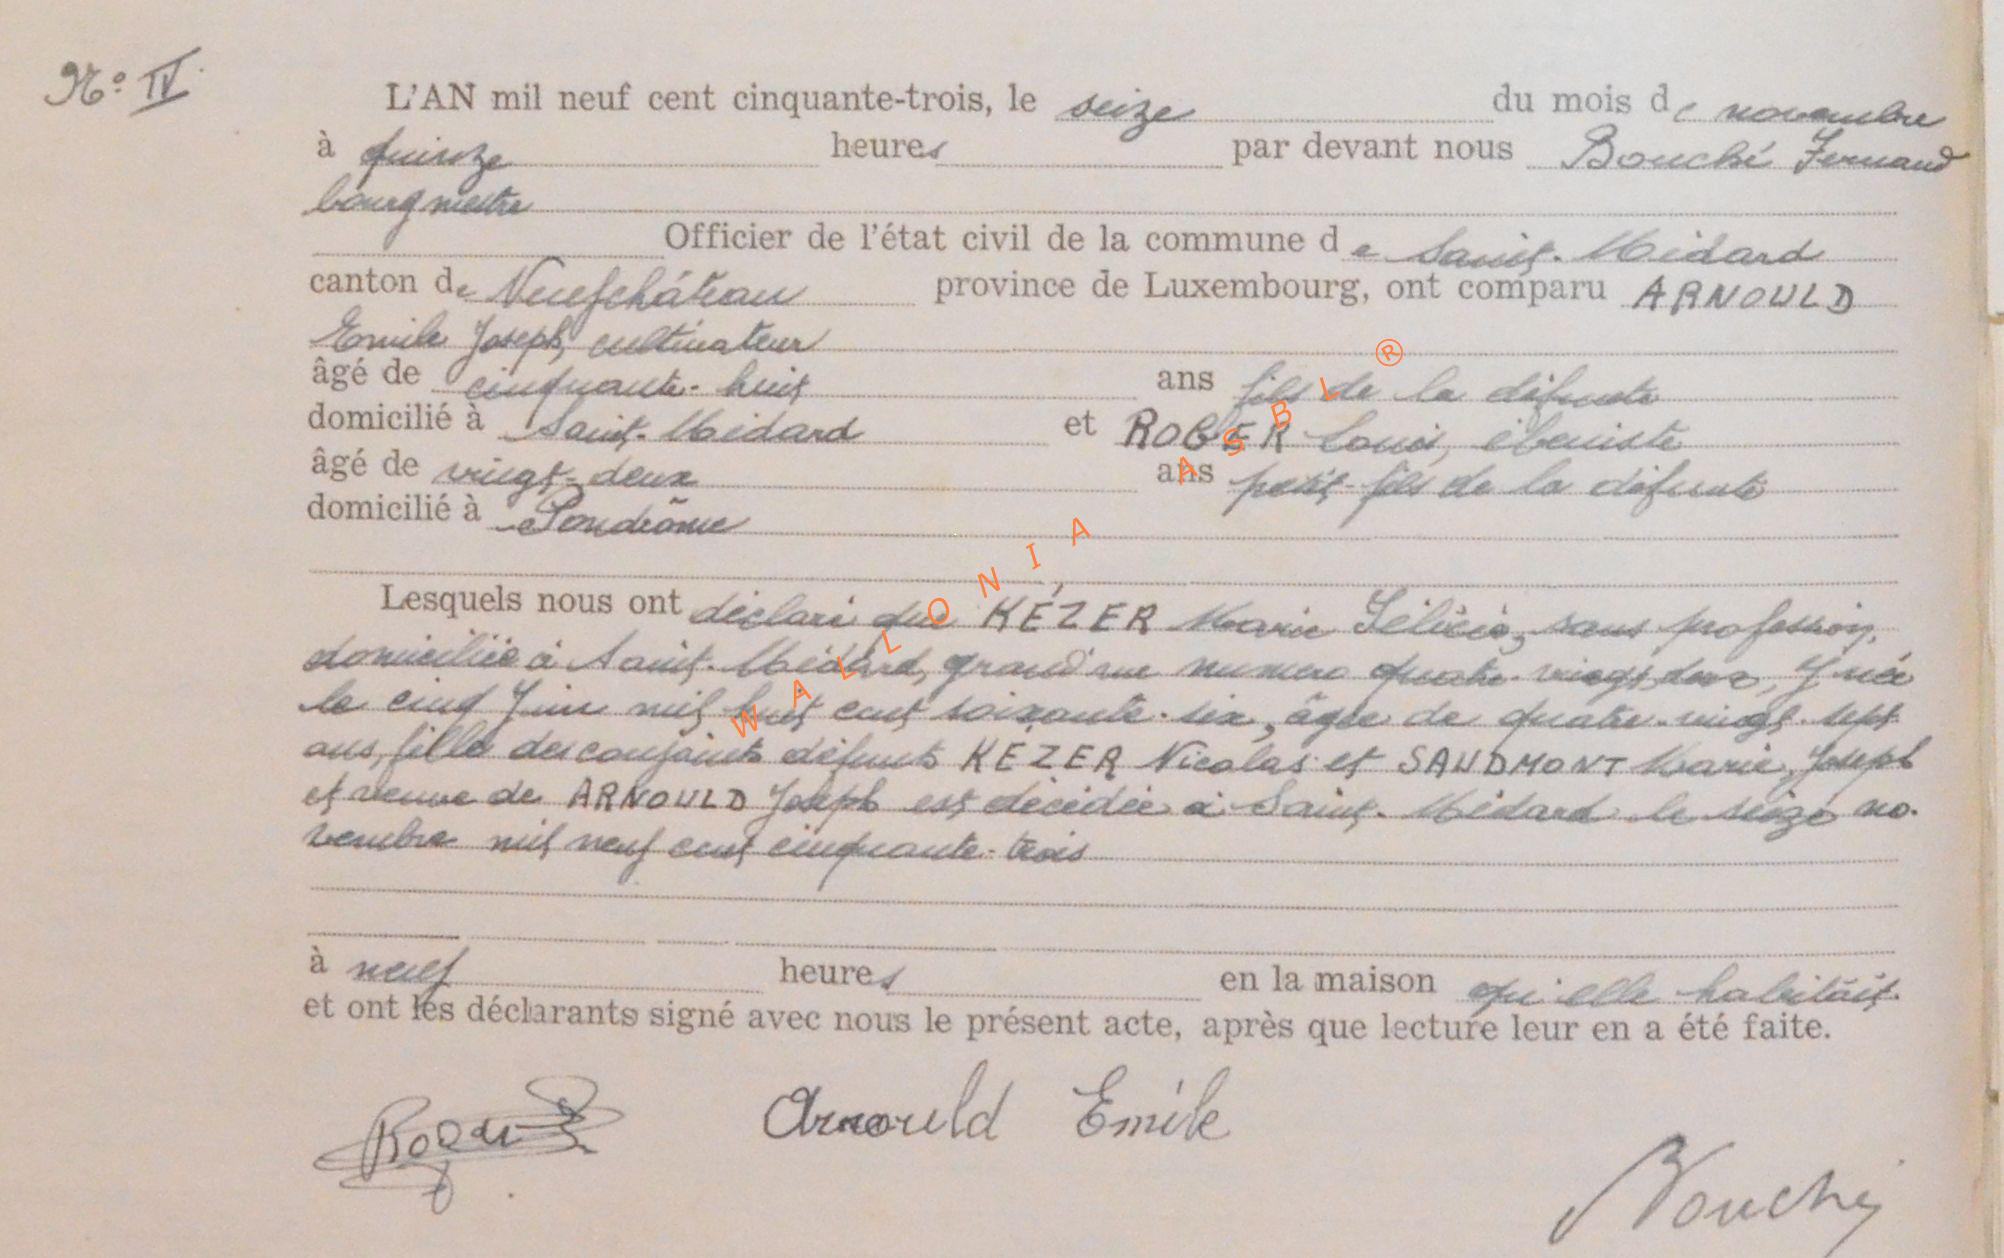 N° IV.
L'AN mil neuf cent cinquante-trois, le seize du mois de novembre
à quinze heures par devant nous Bouché Fernand
bourgmestre
Officier de l'état civil de la commune de Saint-Médard
canton de Neufchâteau province de Luxembourg, ont comparu ARNOULD
Emile Joseph, cultivateur
âgé de cinquante-huit ans fils de la défunte
domicilié à Saint-Médard et ROGER Louis, ébéniste
âgé de vingt-deux ans petit-fils de la défunte
domicilié à Pondrôme
Lesquels nous ont déclaré que KÉZER Marie Félicie, sans profession,
domiciliée à Saint-Médard, grand'rue numéro quatre-vingt-deux, y née
le cinq juin mil huit cent soixante-six, âgée de quatre-vingt-sept
ans, fille des conjoints défunts KÉZER Nicolas et SAUDMONT Marie, Joseph
et veuve de ARNOULD Joseph est décédée à Saint-Médard le seize no-
vembre mil neuf cent cinquante-trois
à neuf heures en la maison qu'elle habitait
et ont les déclarants signé avec nous le présent acte, après que lecture leur en a été faite.
Roger Arnould Emile
Bouché
WALLONIA ASBL ®